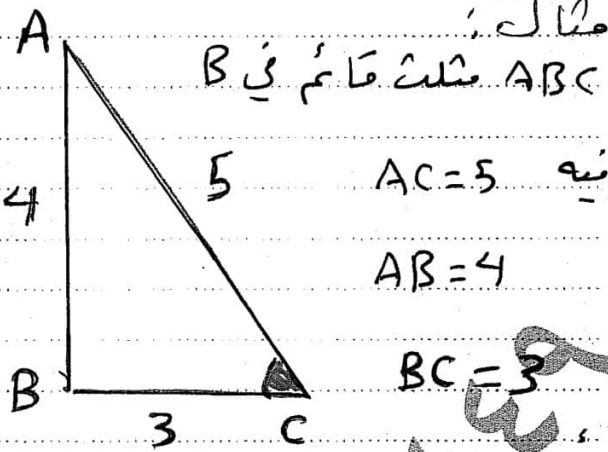 مثال :
ABC مثلث قائم في B
فيه AC=5
AB=4
BC=3
A
4
5
B
3
C